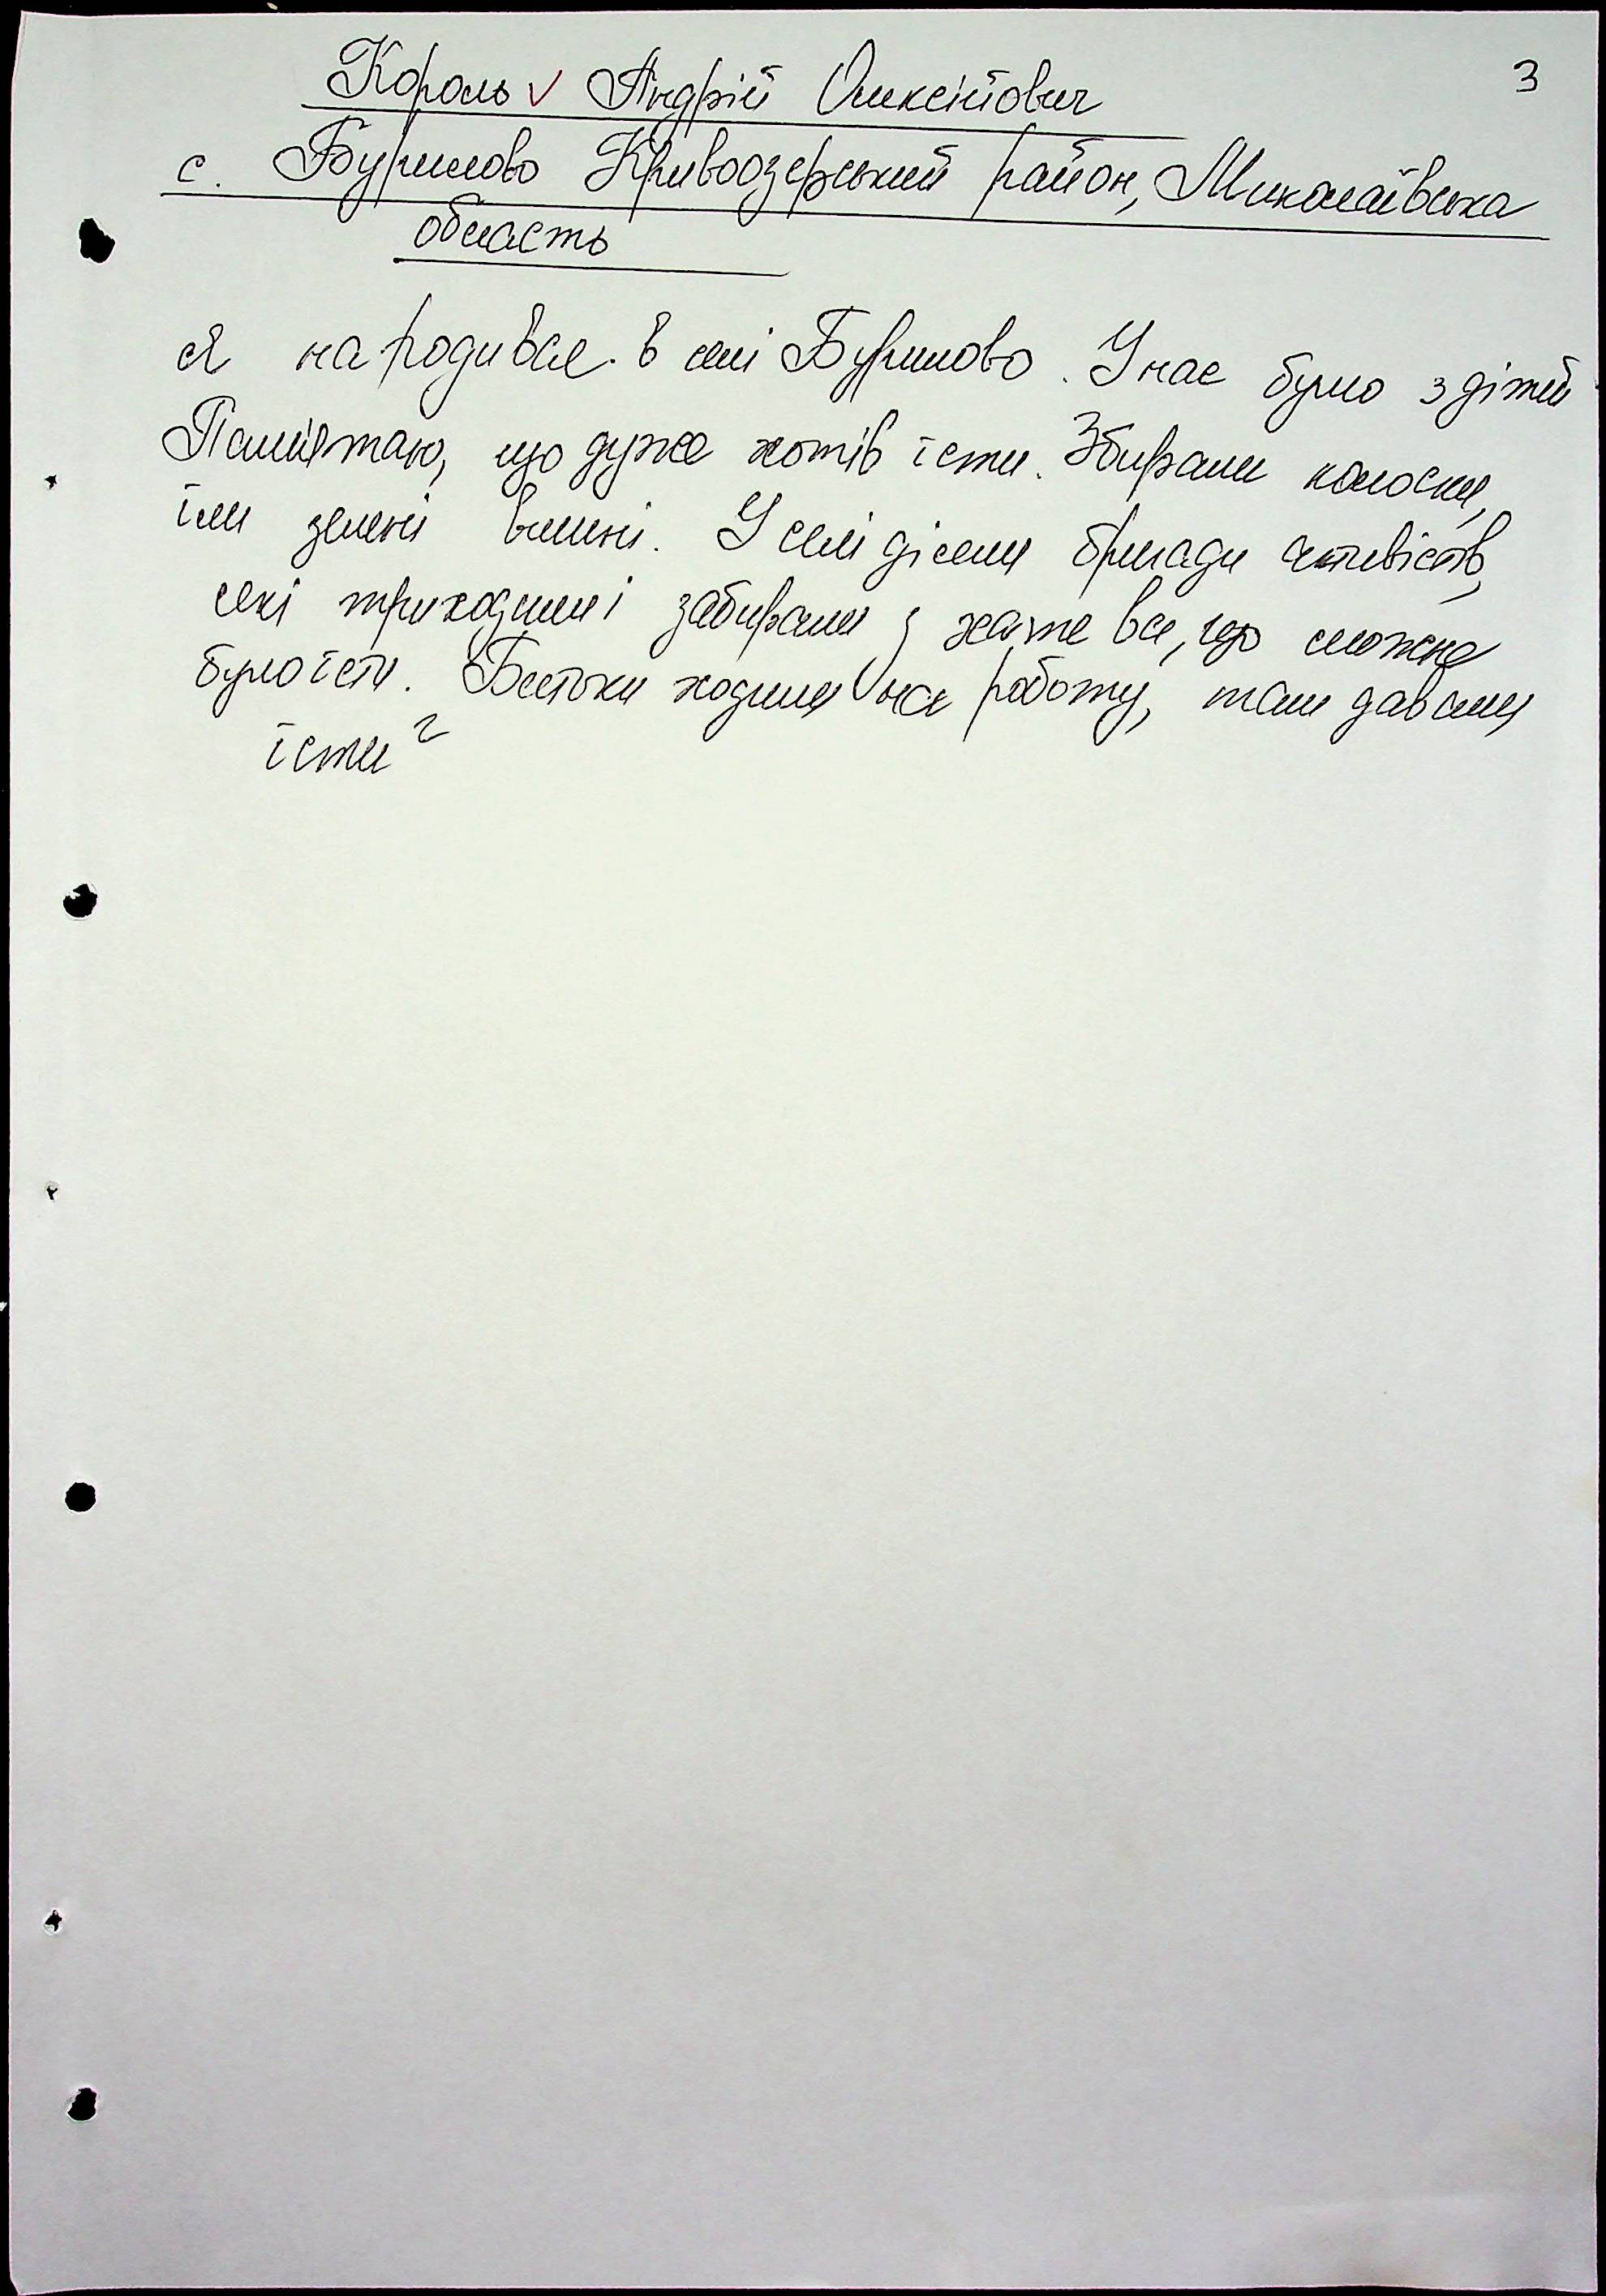 3
Король ✓ Андрій Олексійович
с. Бурилово Кривоозерський район, Миколаївська
область
Я народився в селі Бурилово. У нас було 3 дітей
Пам'ятаю, що дуже хотів їсти. Збирали колоски,
їли зелені вишні. У селі діяли бригади активістів,
які приходили і забирали з хати все, що можна
було їсти. Батьки ходили на роботу, там давали
їсти